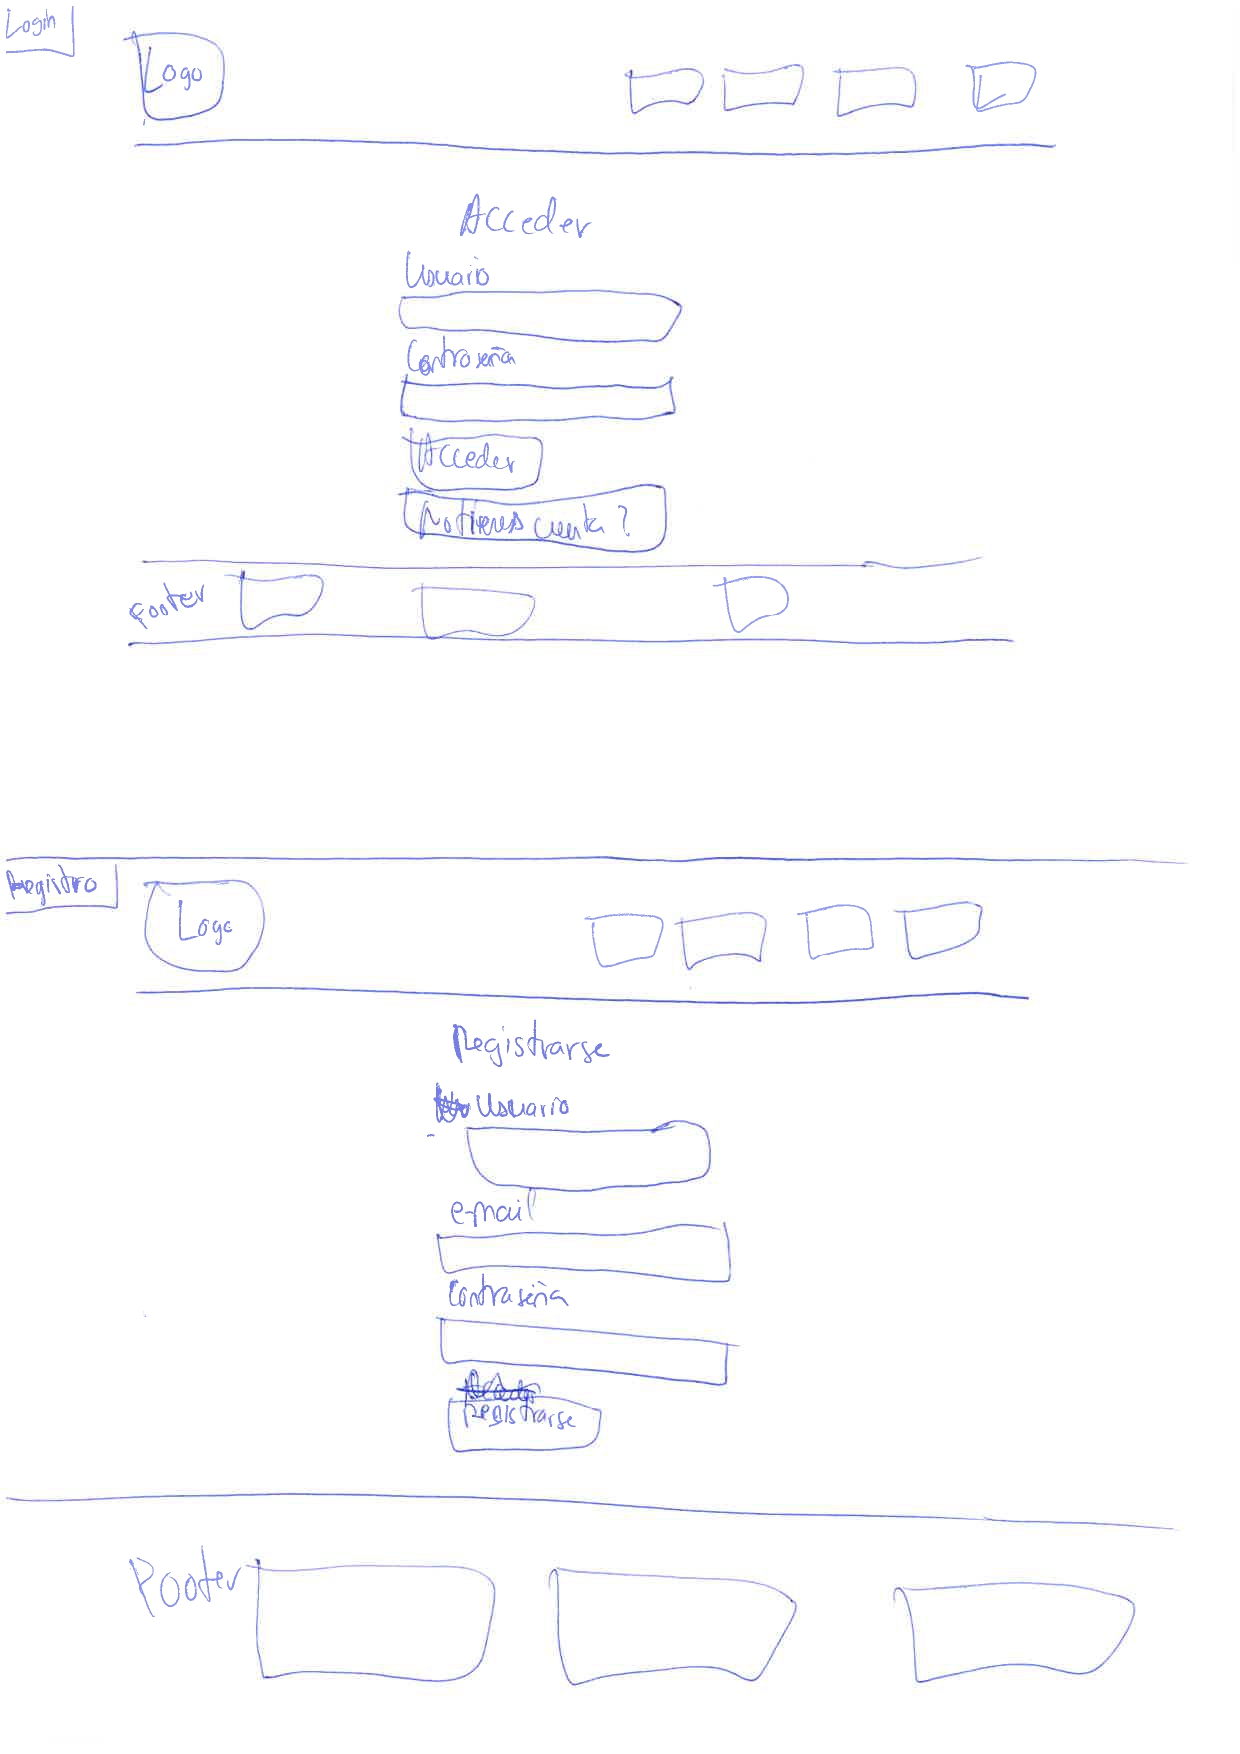 Login
Logo
Acceder
Usuario
Contraseña
Acceder
no tienes cuenta?
Footer
Registro
Logo
Registrarse
Usuario
e-mail
Contraseña
Registrarse
Footer